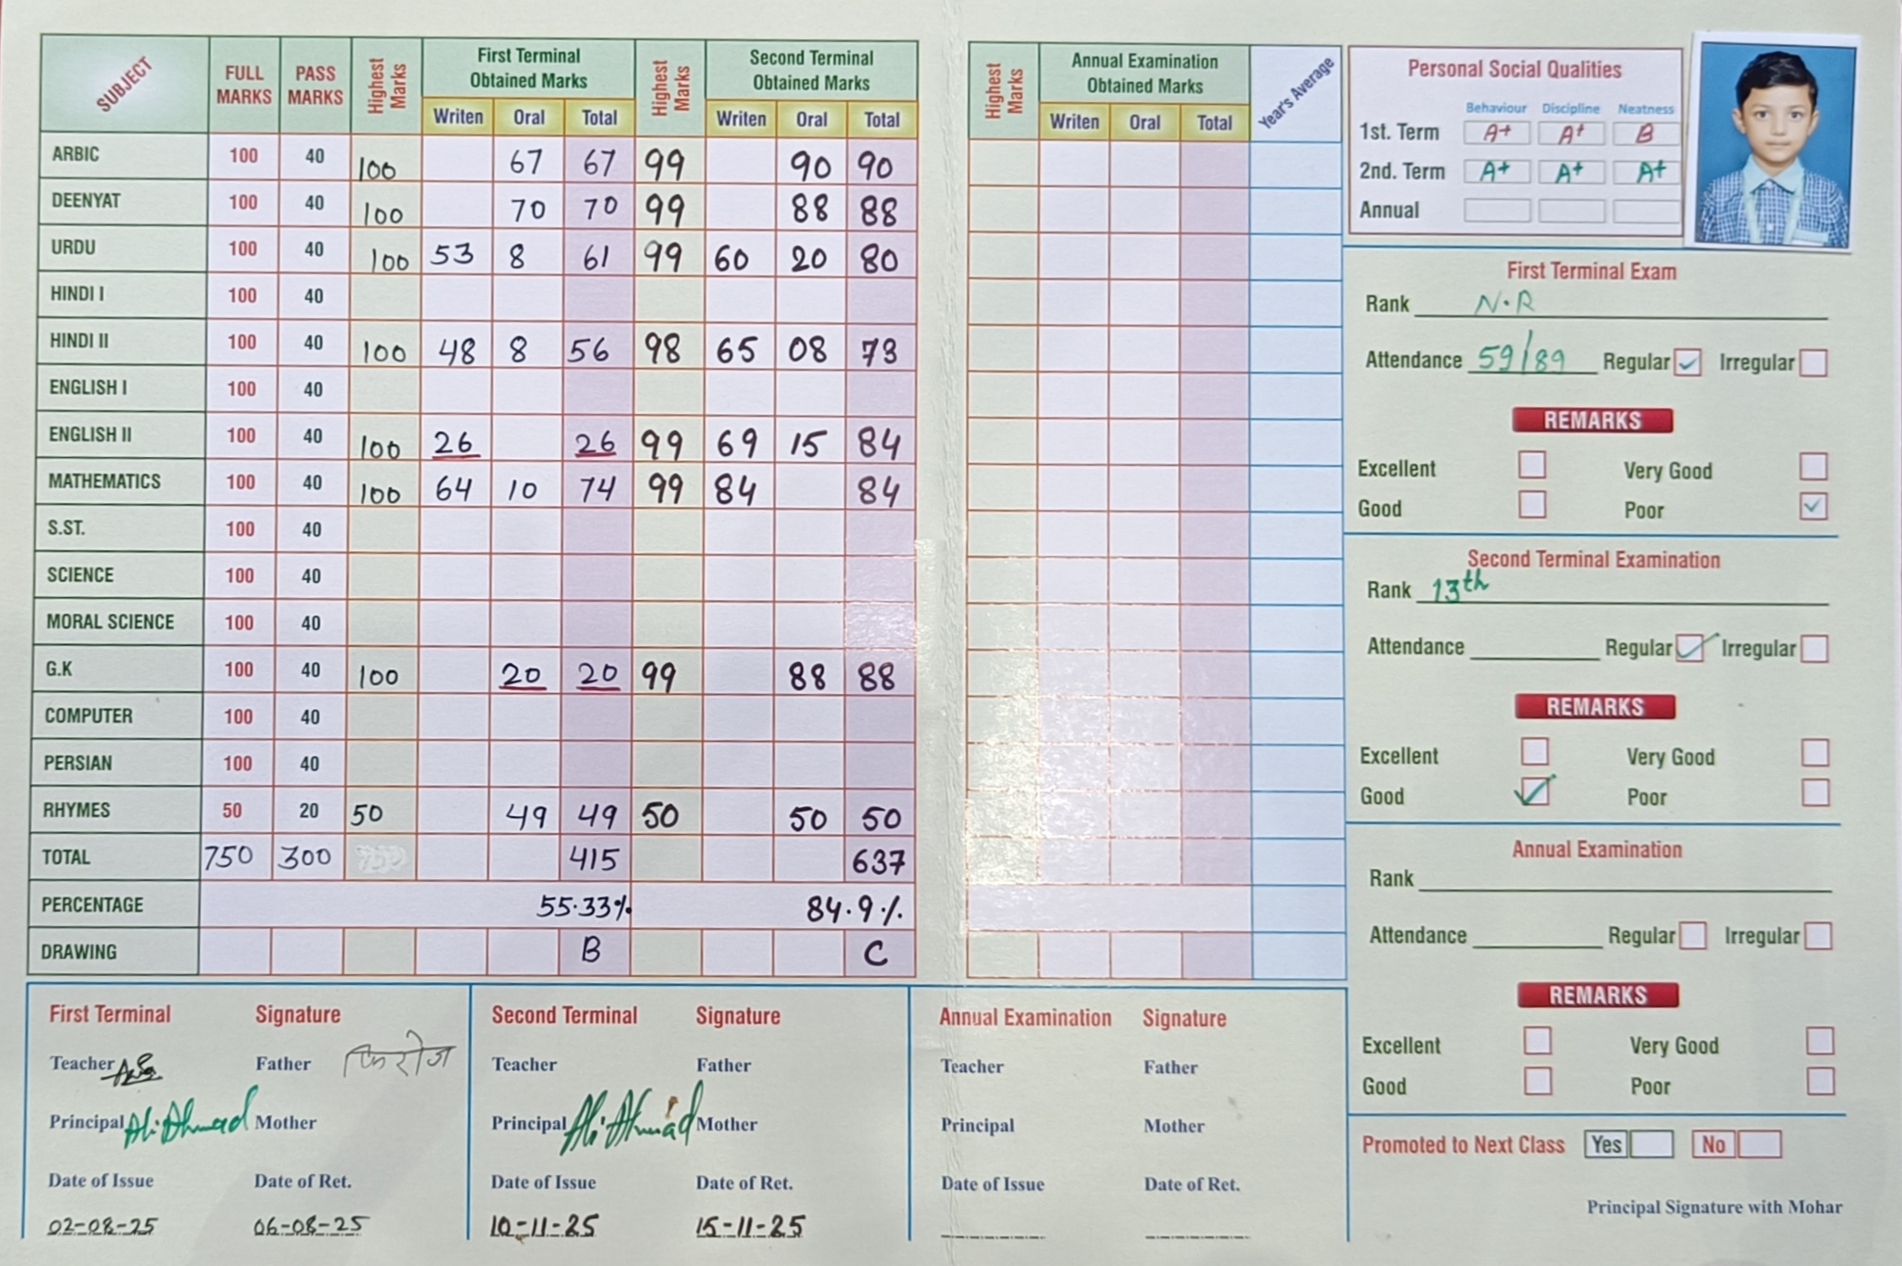 SUBJECT FULL MARKS PASS MARKS Highest Marks First Terminal Obtained Marks Highest Marks Second Terminal Obtained Marks
Writen Oral Total Writen Oral Total
ARBIC 100 40 100 67 67 99 90 90
DEENYAT 100 40 100 70 70 99 88 88
URDU 100 40 100 53 8 61 99 60 20 80
HINDI I 100 40
HINDI II 100 40 100 48 8 56 98 65 08 73
ENGLISH I 100 40
ENGLISH II 100 40 100 26 26 99 69 15 84
MATHEMATICS 100 40 100 64 10 74 99 84 84
S.ST. 100 40
SCIENCE 100 40
MORAL SCIENCE 100 40
G.K 100 40 100 20 20 99 88 88
COMPUTER 100 40
PERSIAN 100 40
RHYMES 50 20 50 49 49 50 50 50
TOTAL 750 300 415 637
PERCENTAGE 55.33% 84.9%
DRAWING B C
Highest Marks Annual Examination Obtained Marks Year's Average
Writen Oral Total
Personal Social Qualities
Behaviour Discipline Neatness
1st. Term A+ A+ B
2nd. Term A+ A+ A+
Annual
First Terminal Exam
Rank N.R
Attendance 59/89 Regular Irregular
REMARKS
Excellent Very Good
Good Poor
Second Terminal Examination
Rank 13th
Attendance Regular Irregular
REMARKS
Excellent Very Good
Good Poor
Annual Examination
Rank
Attendance Regular Irregular
REMARKS
Excellent Very Good
Good Poor
Promoted to Next Class Yes No
Principal Signature with Mohar
First Terminal Signature
Teacher Father फिरोज
Principal Ali Ahmad Mother
Date of Issue Date of Ret.
02-08-25 06-08-25
Second Terminal Signature
Teacher Father
Principal Ali Ahmad Mother
Date of Issue Date of Ret.
10-11-25 15-11-25
Annual Examination Signature
Teacher Father
Principal Mother
Date of Issue Date of Ret.